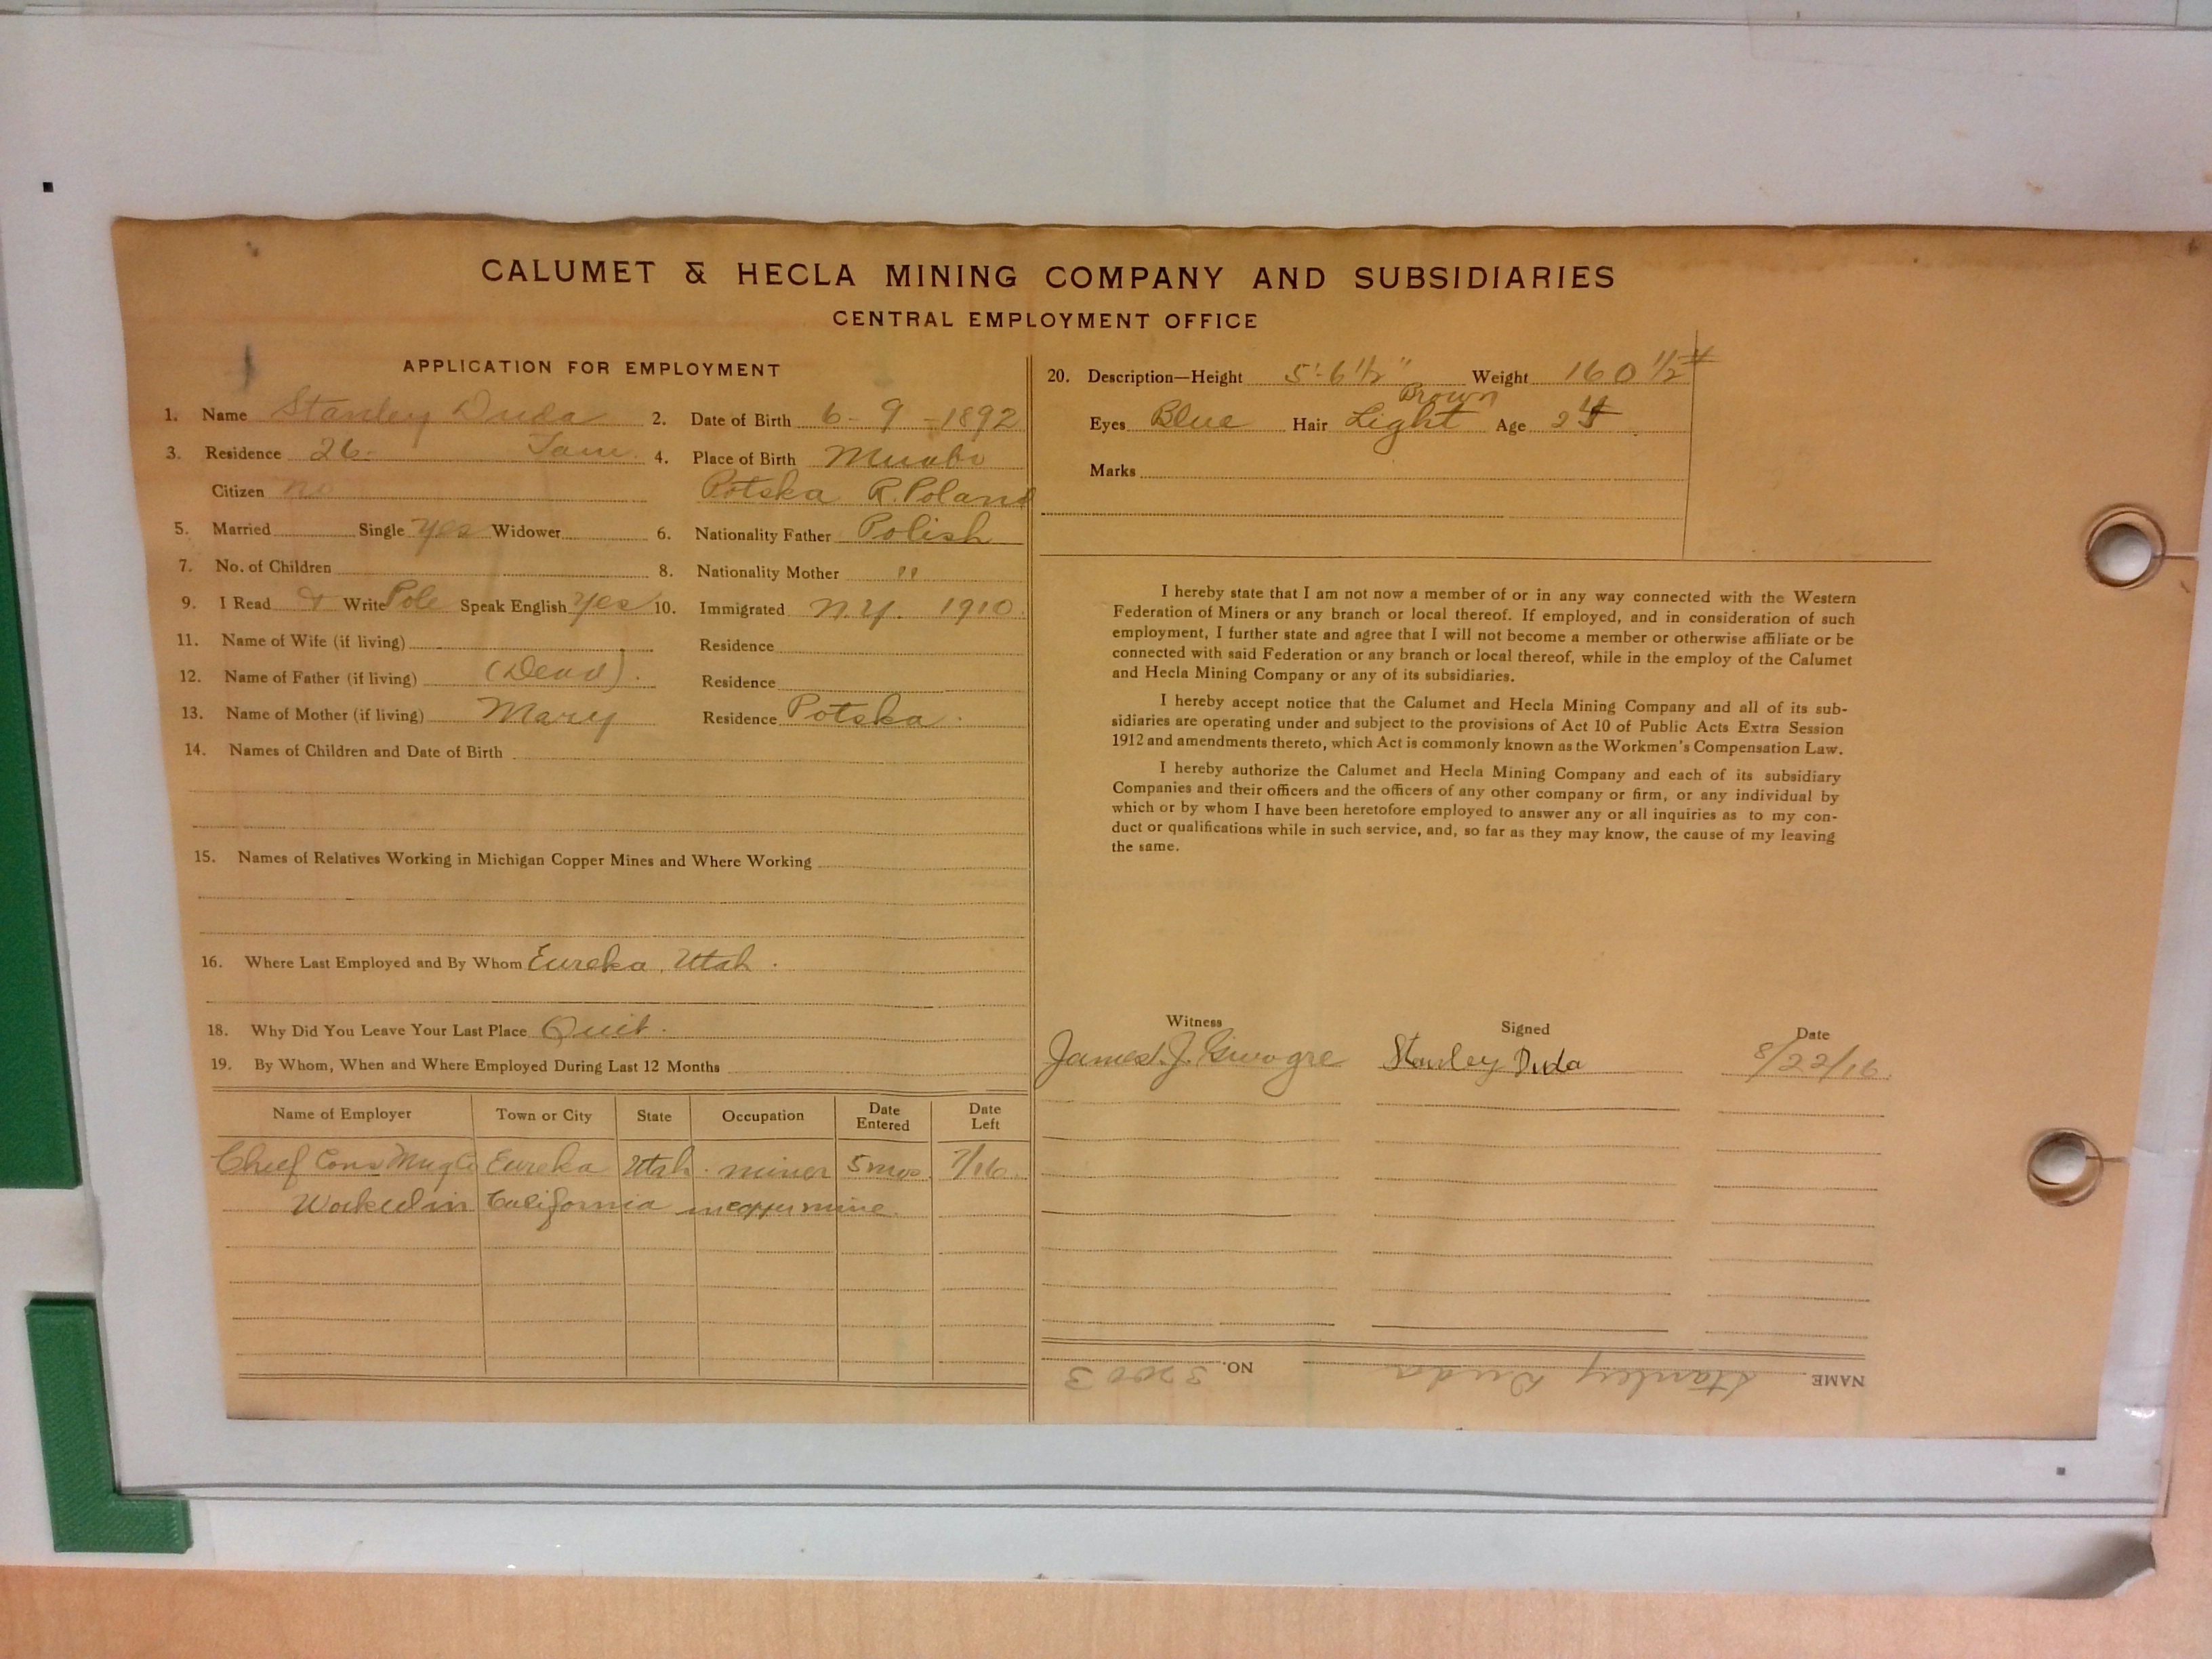 CALUMET & HECLA MINING COMPANY AND SUBSIDIARIES
CENTRAL EMPLOYMENT OFFICE
APPLICATION FOR EMPLOYMENT
1. Name Stanley Duda 2. Date of Birth 6-9-1892
3. Residence 26- 4. Place of Birth
Citizen no Potska R. Poland
5. Married Single yes Widower 6. Nationality Father Polish
7. No. of Children 8. Nationality Mother "
9. I Read & Write Pole Speak English yes 10. Immigrated N.Y. 1910.
11. Name of Wife (if living) Residence
12. Name of Father (if living) (Dead). Residence
13. Name of Mother (if living) Mary Residence Potska.
14. Names of Children and Date of Birth
15. Names of Relatives Working in Michigan Copper Mines and Where Working
16. Where Last Employed and By Whom Eureka, Utah.
18. Why Did You Leave Your Last Place Quit.
19. By Whom, When and Where Employed During Last 12 Months
Name of Employer Town or City State Occupation Date Entered Date Left
Chief Cons Mng Co Eureka Utah. miner 5 mos. 7/16.
Worked in California in copper mine.
20. Description—Height 5'-6 1/2" Weight 160 1/2 #
Brown
Eyes Blue Hair Light Age 24
Marks
I hereby state that I am not now a member of or in any way connected with the Western
Federation of Miners or any branch or local thereof. If employed, and in consideration of such
employment, I further state and agree that I will not become a member or otherwise affiliate or be
connected with said Federation or any branch or local thereof, while in the employ of the Calumet
and Hecla Mining Company or any of its subsidiaries.
I hereby accept notice that the Calumet and Hecla Mining Company and all of its sub-
sidiaries are operating under and subject to the provisions of Act 10 of Public Acts Extra Session
1912 and amendments thereto, which Act is commonly known as the Workmen's Compensation Law.
I hereby authorize the Calumet and Hecla Mining Company and each of its subsidiary
Companies and their officers and the officers of any other company or firm, or any individual by
which or by whom I have been heretofore employed to answer any or all inquiries as to my con-
duct or qualifications while in such service, and, so far as they may know, the cause of my leaving
the same.
Witness Signed Date
James J. Stanley Duda 8/22/16.
NAME Stanley Duda NO.